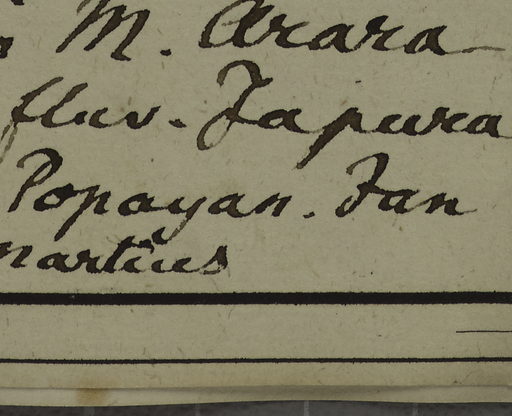 M. Arara
fluv. Japura
Popayan. Jan
martius